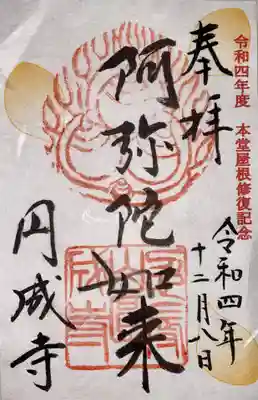 令和四年度 本堂屋根修復記念
奉拝
令和四年
十二月八日
阿弥陀如来
円成寺